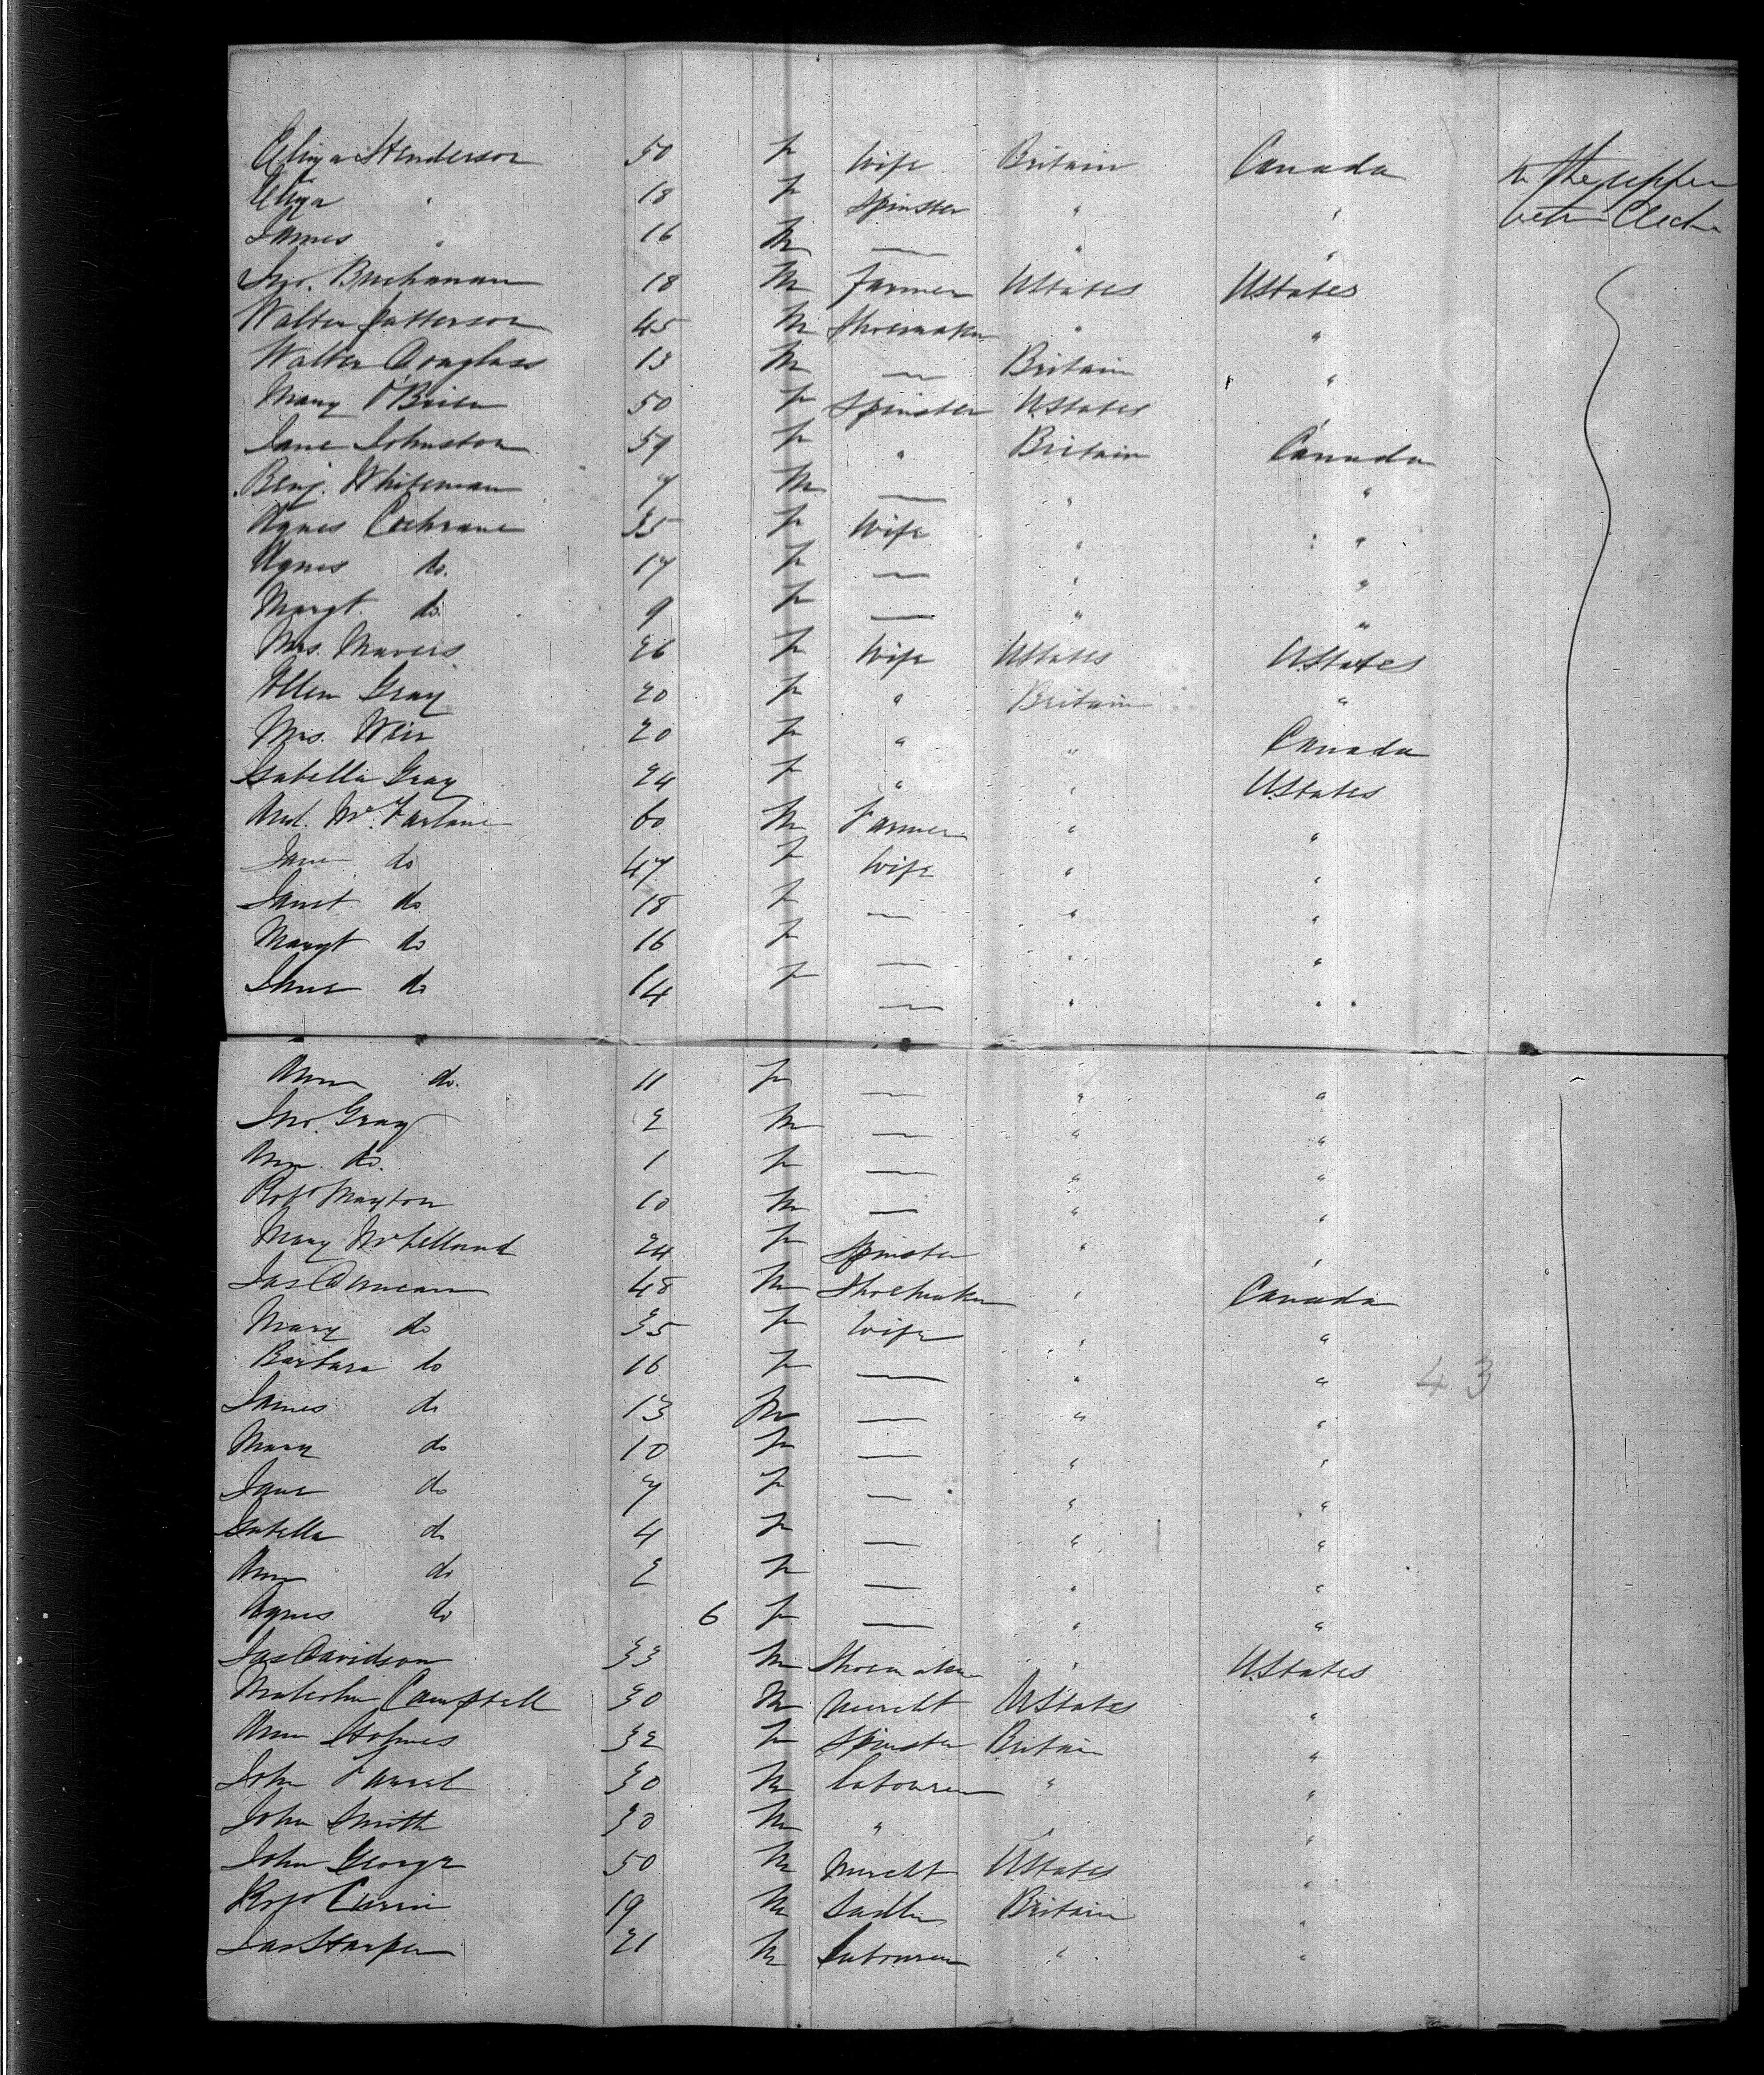 Eliza Henderson 50 F Wife Britain Canada In the upper
Eliza " 18 F Spinster " " betn Decks
James " 16 M — " "
Jno. Buchanan 18 M Farmer UStates UStates
Walter Patterson 45 M Shoemaker " "
Walter Douglass 13 M — Britain "
Mary O'Brien 50 F Spinster UStates "
Jane Johnston 59 F " Britain Canada
Benj. Whiteman 7 M — " "
Agnes Cochrane 35 F Wife " "
Agnes do. 17 F — " "
Margt. do. 9 F — " "
Mrs. Mavers 26 F Wife UStates UStates
Ellen Gray 20 F " Britain "
Mrs. Weir 20 F " " Canada
Isabella Gray 24 F " " UStates
And. McFarlane 60 M Farmer " "
Jane do 47 F Wife " "
Janet do 18 F — " "
Margt do 16 F — " "
Jane do 14 F — " "
Ann do. 11 F — " "
Jno. Gray 2 M — " "
Ann do. 1 F — " "
Robt 10 M — " "
Mary McLelland 24 F Spinster " "
Jas Duncan 48 M Shoemaker " Canada
Mary do 35 F Wife " "
Barbara do 16 F — " " 43
James do 13 M — " "
Mary do 10 F — " "
Jane do 7 F — " "
Isabella do 4 F — " "
Ann do 2 F — " "
Agnes do 6 F — " "
Jas Davidson 33 M Shoemaker " UStates
Malcolm Campbell 30 M Mercht UStates "
Ann Holmes 32 F Spinster Britain "
John 30 M Labourer " "
John Smith 30 M " " "
John George 50 M Mercht UStates "
Robt Currie 19 M Sadler Britain "
Jas Harper 21 M Labourer " "